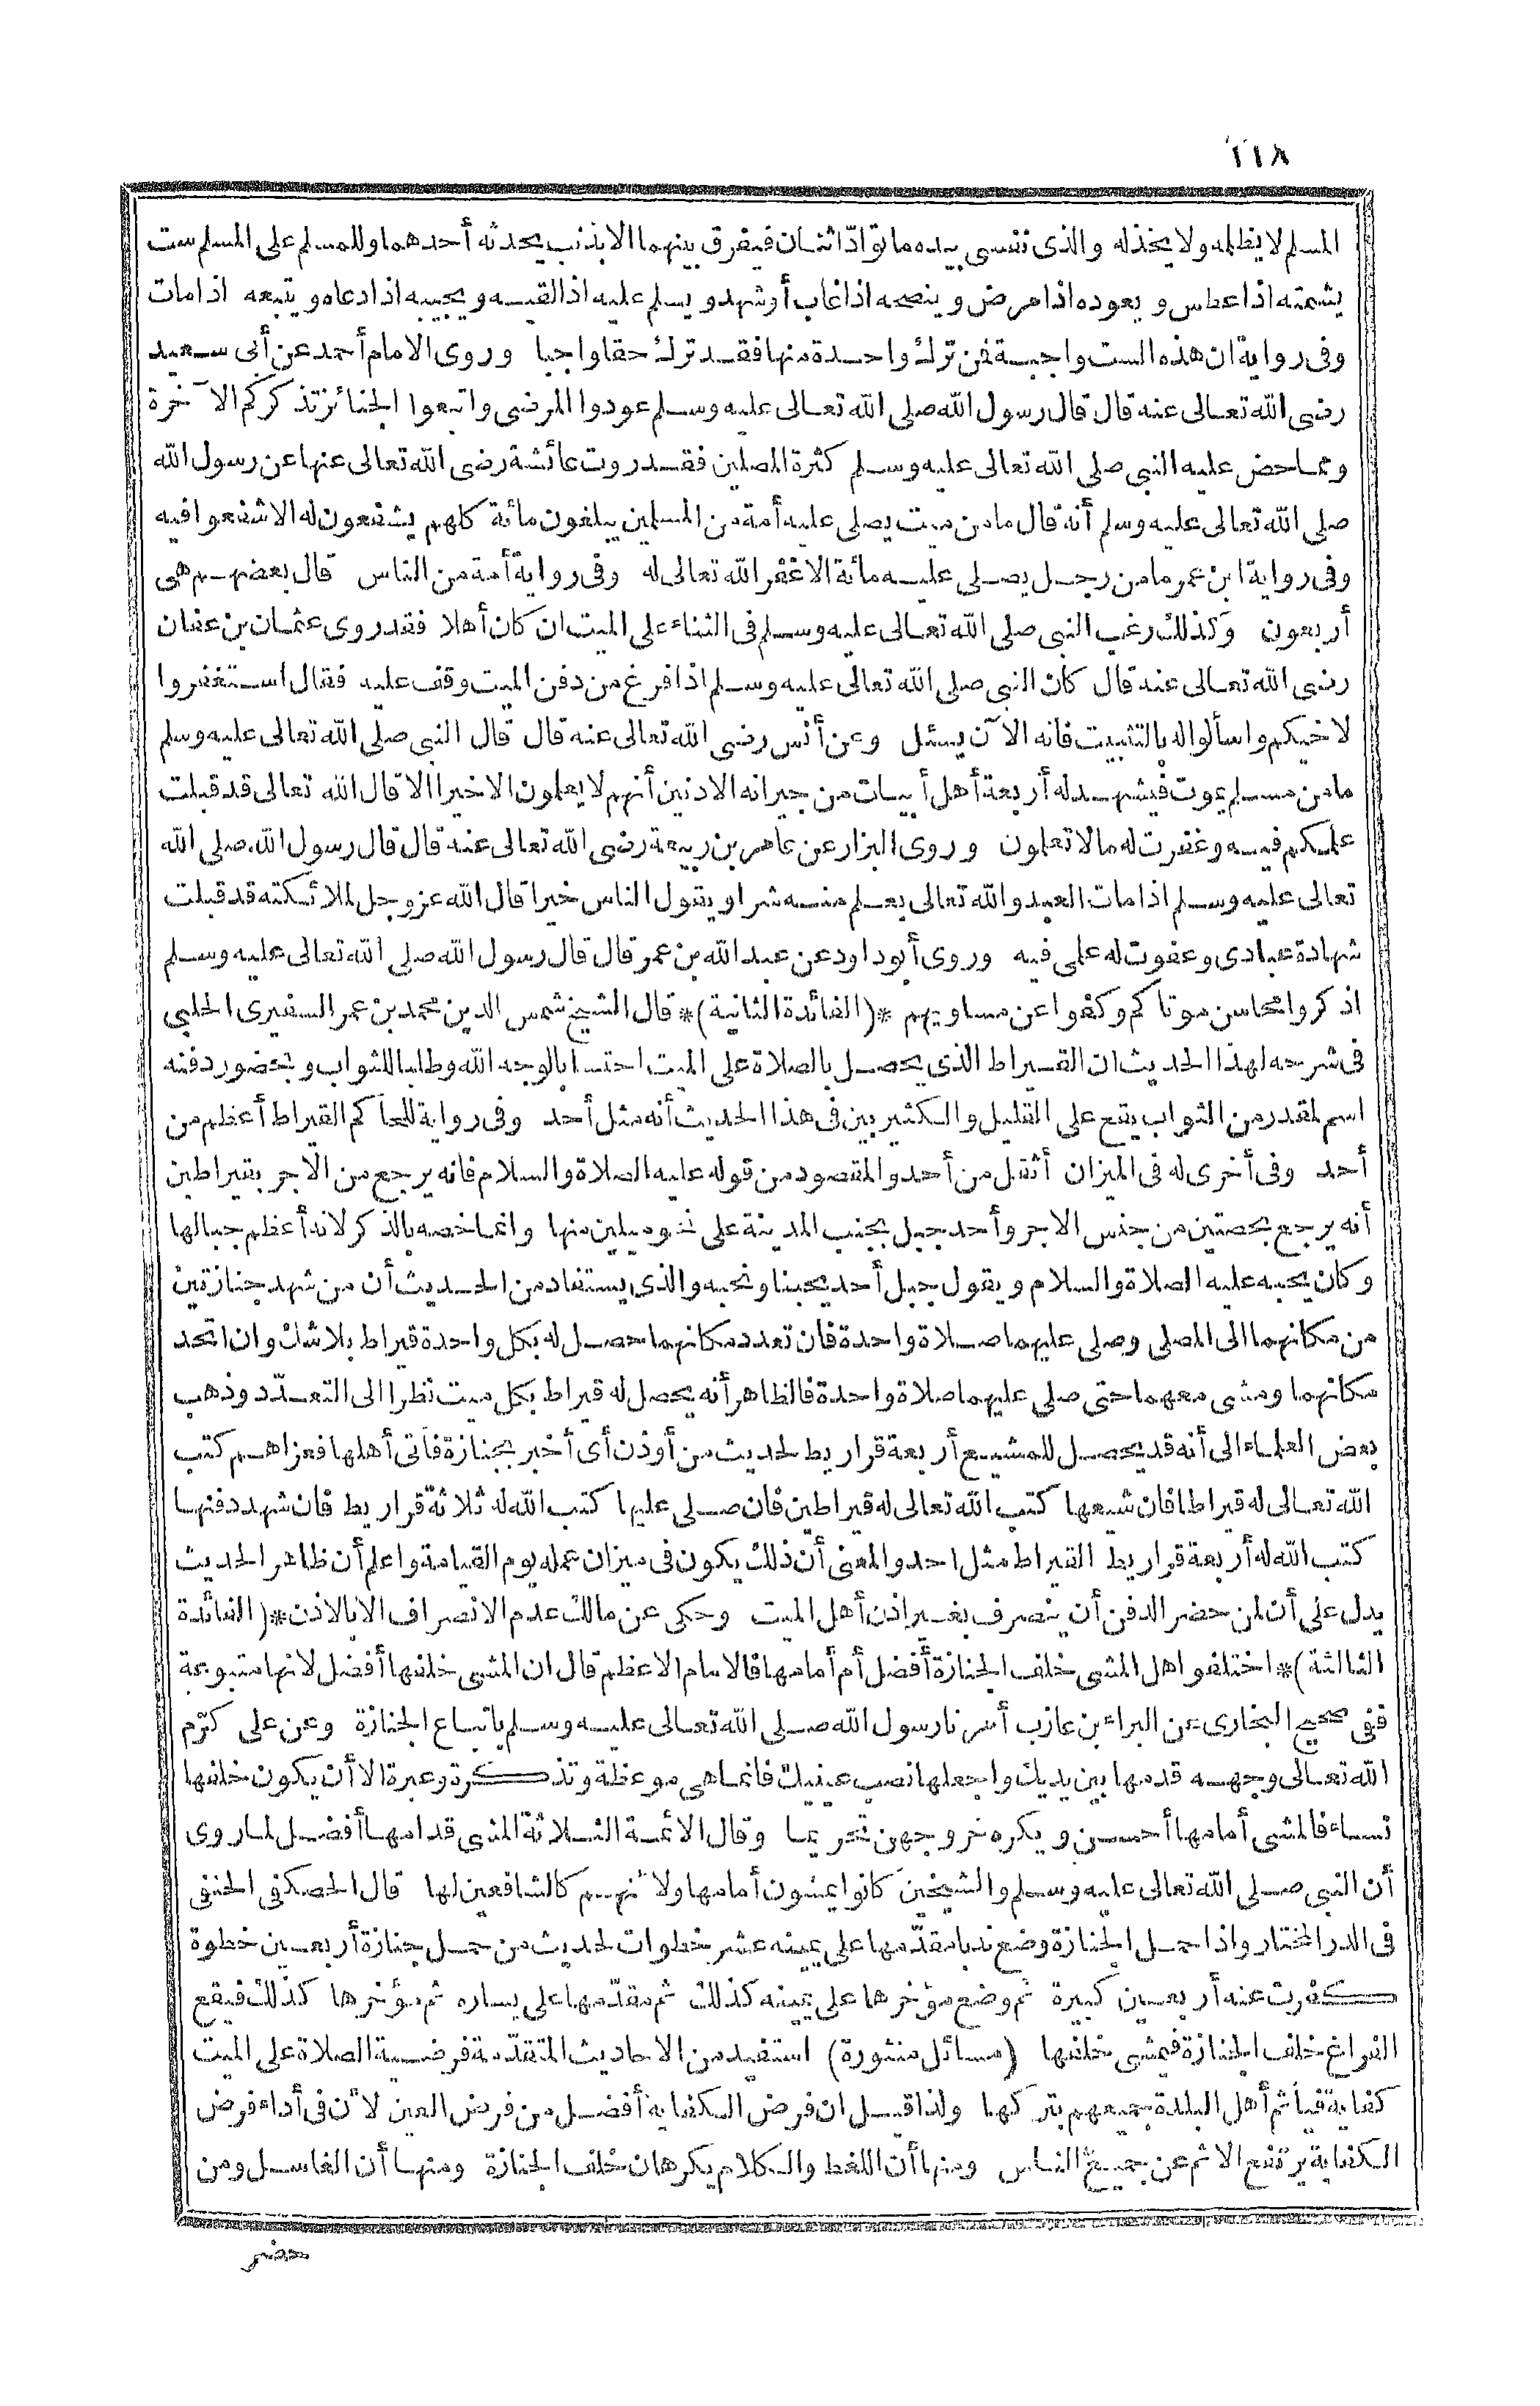 ٢١٨
المسلم لا يظلمه ولا يخذله والذى نفسى بيده ما توادّ اثنان فيفرق بينهما الا بذنب يحدثه أحدهما وللمسلم على المسلم ست
يشمته اذا عطس و يعوده اذا مرض و ينصحه اذا غاب أو شهد و يسلم عليه اذا لقيه و يجيبه اذا دعاه و يتبعه اذا مات
وفى رواية ان هذه الست واجبة فمن ترك واحدة منها فقد ترك حقا واجبا وروى الامام أحمد عن أبى سعيد
رضى الله تعالى عنه قال قال رسول الله صلى الله تعالى عليه وسلم عودوا المرضى واتبعوا الجنائز تذكركم الآخرة
ومما حض عليه النبى صلى الله تعالى عليه وسلم كثرة المصلين فقد روت عائشة رضى الله تعالى عنها عن رسول الله
صلى الله تعالى عليه وسلم أنه قال ما من ميت يصلى عليه أمة من المسلمين يبلغون مائة كلهم يشفعون له الا شفعوا فيه
وفى رواية ابن عمر ما من رجل يصلى عليه مائة الا غفر الله تعالى له وفى رواية أمة من الناس قال بعضهم هى
أربعون وكذلك رغب النبى صلى الله تعالى عليه وسلم فى الثناء على الميت ان كان أهلا فقد روى عثمان بن عفان
رضى الله تعالى عنه قال كان النبى صلى الله تعالى عليه وسلم اذا فرغ من دفن الميت وقف عليه فقال استغفروا
لاخيكم واسألوا له بالتثبيت فانه الآن يسئل وعن أنس رضى الله تعالى عنه قال قال النبى صلى الله تعالى عليه وسلم
ما من مسلم يموت فيشهد له أربعة أهل أبيات من جيرانه الادنين أنهم لا يعلمون الا خيرا الا قال الله تعالى قد قبلت
علمكم فيه وغفرت له ما لا تعلمون وروى البزار عن عامر بن ربيعة رضى الله تعالى عنه قال قال رسول الله صلى الله
تعالى عليه وسلم اذا مات العبد والله تعالى يعلم منه شرا و يقول الناس خيرا قال الله عز وجل لملائكته قد قبلت
شهادة عبادى وعفوت له علمى فيه وروى أبو داود عن عبد الله بن عمر قال قال رسول الله صلى الله تعالى عليه وسلم
اذكروا محاسن موتاكم وكفوا عن مساويهم *(الفائدة الثانية)* قال الشيخ شمس الدين محمد بن عمر السفيرى الحلبى
فى شرحه لهذا الحديث ان القيراط الذى يحصل بالصلاة على الميت احتسابا لوجه الله وطلبا للثواب و بحضور دفنه
اسم لمقدر من الثواب يقع على القليل والكثير بين فى هذا الحديث أنه مثل أحد وفى رواية للحاكم القيراط أعظم من
أحد وفى أخرى له فى الميزان أثقل من أحد والمقصود من قوله عليه الصلاة والسلام فانه يرجع من الاجر بقيراطين
أنه يرجع بحصتين من جنس الاجر وأحد جبل بجنب المدينة على نحو ميلين منها وانما خصه بالذكر لانه أعظم جبالها
وكان يحبه عليه الصلاة والسلام و يقول جبل أحد يحبنا ونحبه والذى يستفاد من الحديث أن من شهد جنازتين
من مكانهما الى المصلى وصلى عليهما صلاة واحدة فان تعدد مكانهما حصل له بكل واحدة قيراط بلا شك وان اتحد
مكانهما ومشى معهما حتى صلى عليهما صلاة واحدة فالظاهر أنه يحصل له قيراط بكل ميت نظرا الى التعدّد وذهب
بعض العلماء الى أنه قد يحصل للمشيع أربعة قراريط لحديث من أوذن أى أخبر بجنازة فأتى أهلها فعزاهم كتب
الله تعالى له قيراطا فان شيعها كتب الله تعالى له قيراطين فان صلى عليها كتب الله له ثلاثة قراريط فان شهد دفنها
كتب الله له أربعة قراريط القيراط مثل احد والمعنى أن ذلك يكون فى ميزان عمله يوم القيامة واعلم أن ظاهر الحديث
يدل على أن لمن حضر الدفن أن ينصرف بغير اذن أهل الميت وحكى عن مالك عدم الانصراف الا بالاذن *(الفائدة
الثالثة)* اختلفوا هل المشى خلف الجنازة أفضل أم أمامها فالامام الاعظم قال ان المشى خلفها أفضل لانها متبوعة
ففى صحيح البخارى عن البراء بن عازب أمرنا رسول الله صلى الله تعالى عليه وسلم باتباع الجنازة وعن على كرّم
الله تعالى وجهه قدمها بين يديك واجعلها نصب عينيك فانما هى موعظة وتذكرة وعبرة الا أن يكون خلفها
نساء فالمشى أمامها أحسن و يكره خروجهن تحريما وقال الائمة الثلاثة المشى قدامها أفضل لما روى
أن النبى صلى الله تعالى عليه وسلم والشيخين كانوا يمشون أمامها ولانهم كالشافعين لها قال الحصكفى الحنفى
فى الدر المختار واذا حمل الجنازة وضع ندبا مقدّمها على يمينه عشر خطوات لحديث من حمل جنازة أربعين خطوة
كفرت عنه أربعين كبيرة ثم وضع مؤخرها على يمينه كذلك ثم مقدّمها على يساره ثم مؤخرها كذلك فيقع
الفراغ خلف الجنازة فيمشى خلفها (مسائل منثورة) استفيد من الاحاديث المتقدّمة فرضية الصلاة على الميت
كفاية فيأثم أهل البلدة جميعهم بتركها ولذا قيل ان فرض الكفاية أفضل من فرض العين لأن فى أداء فرض
الكفاية يرتفع الاثم عن جميع الناس ومنها أن اللغط والكلام يكرهان خلف الجنازة ومنها أن الغاسل ومن
حضر